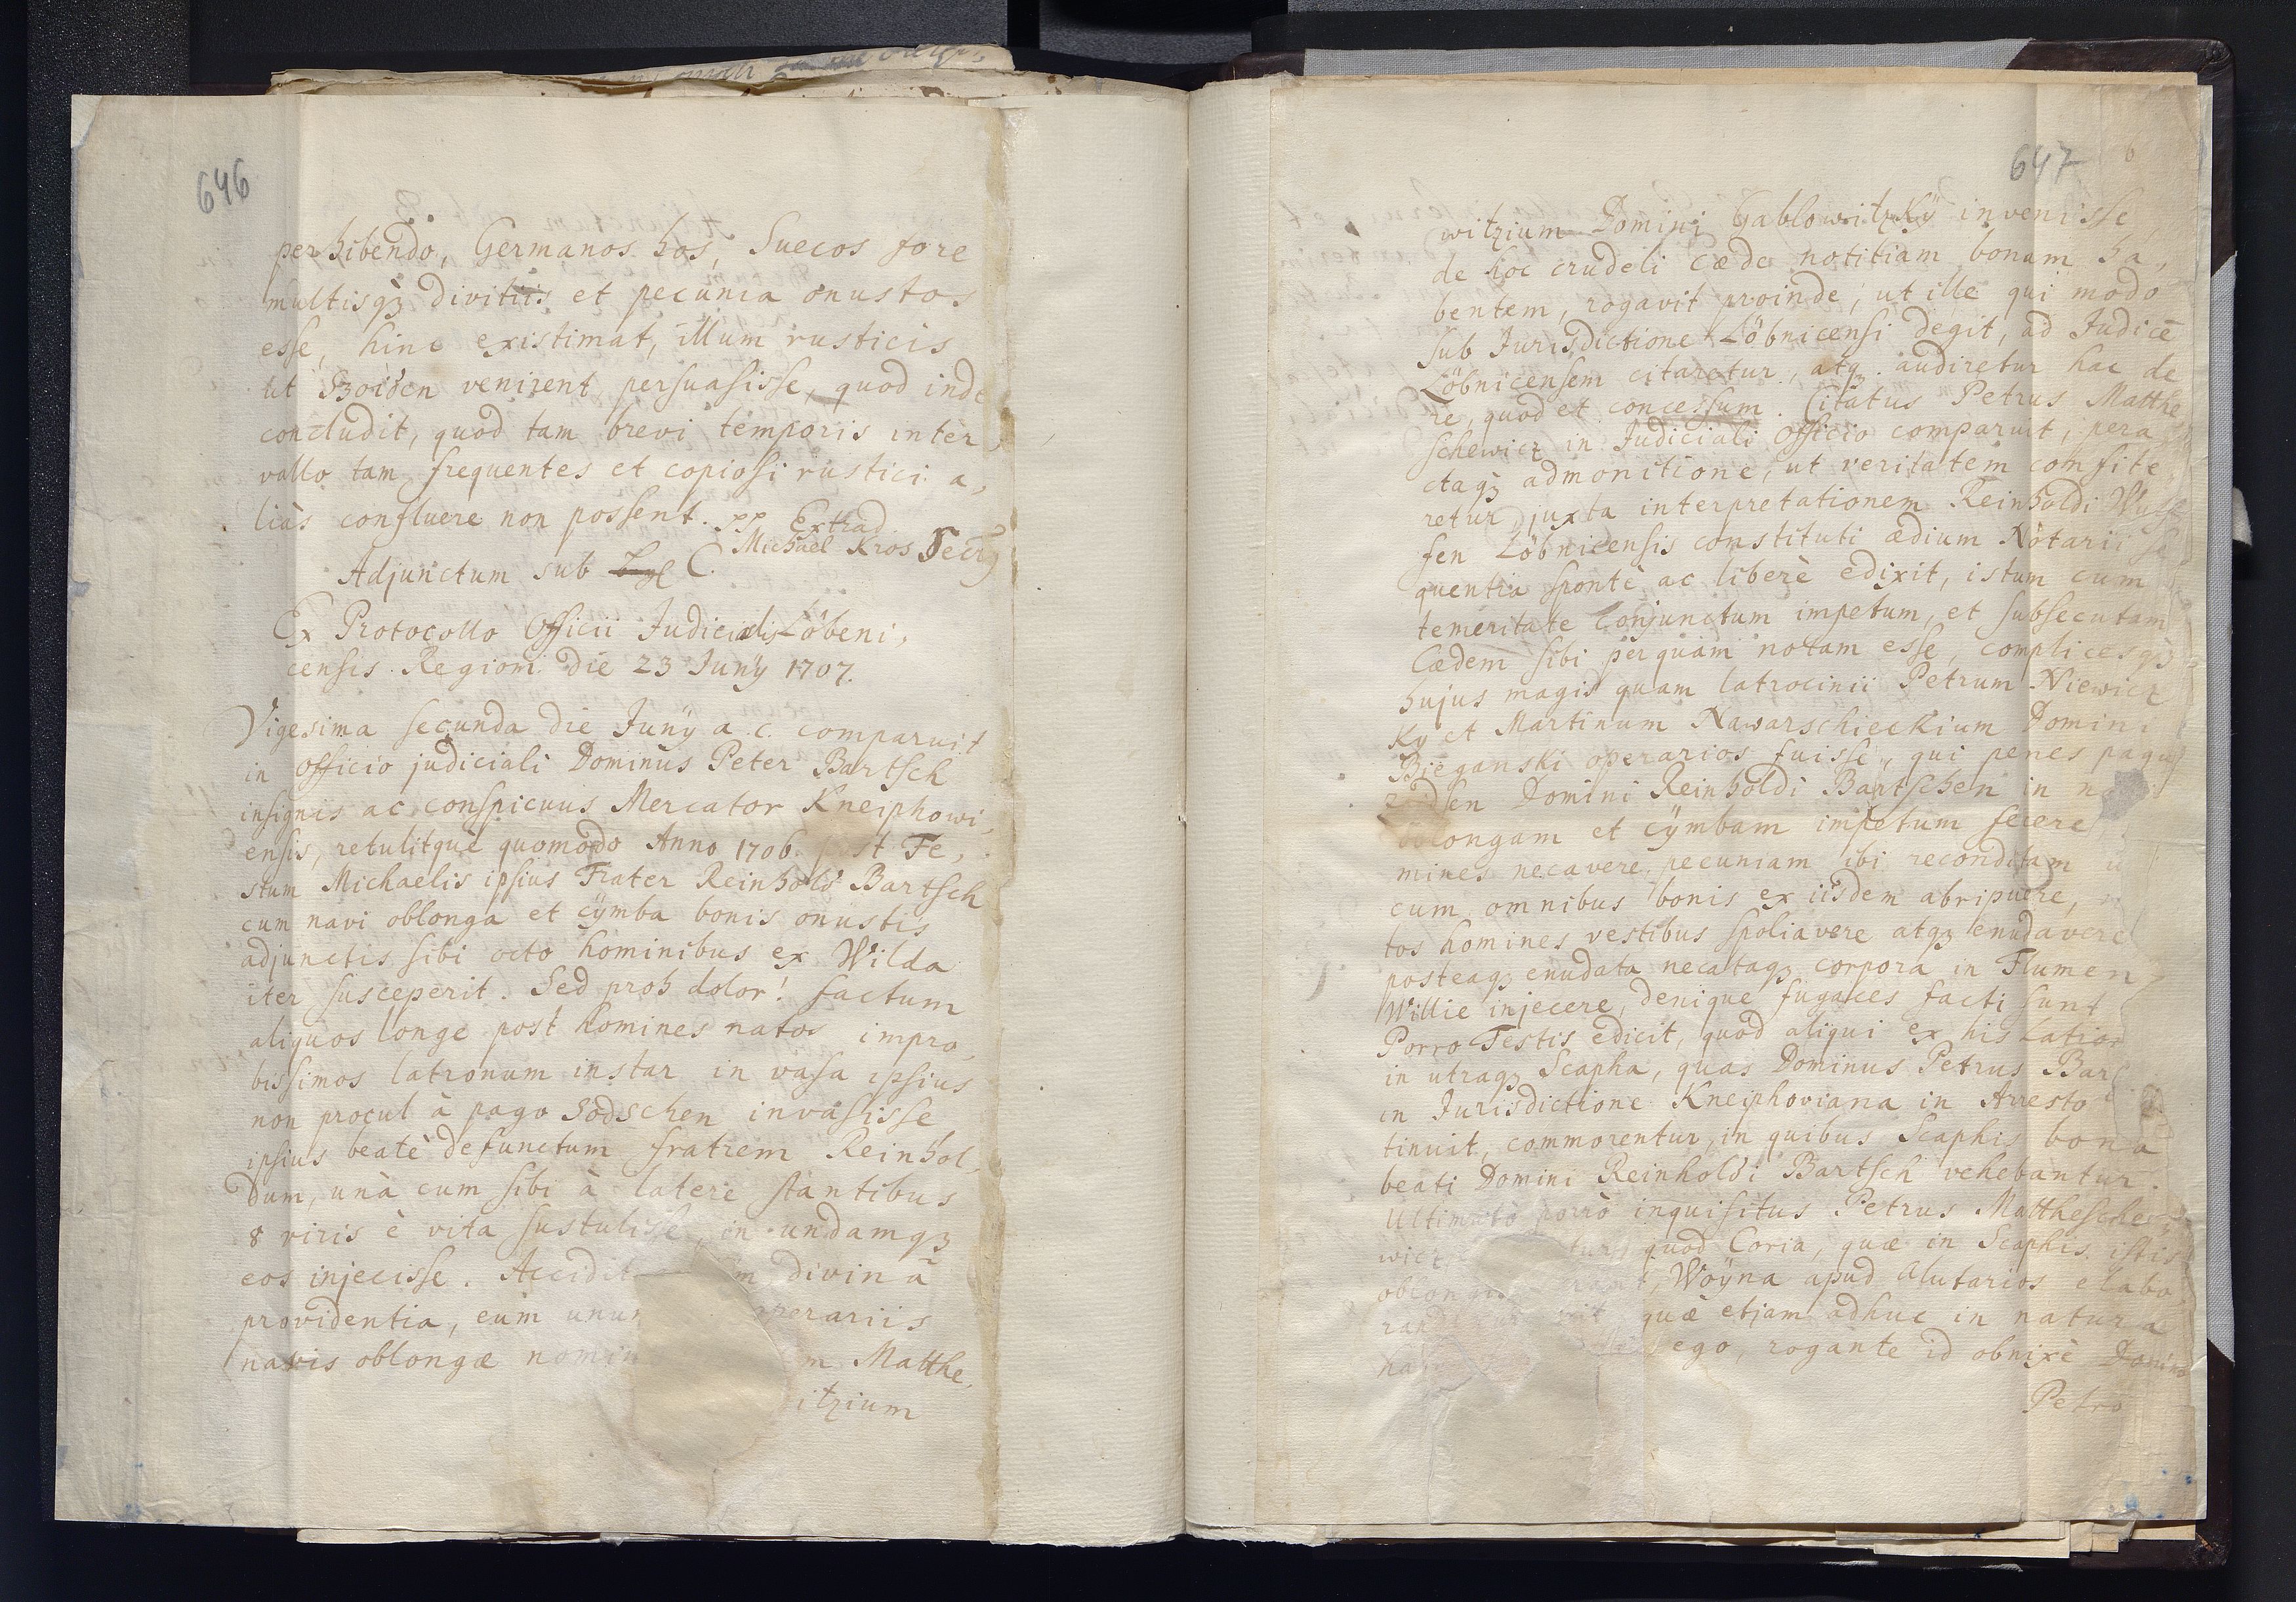 646
perhibendo, Germanos hos, Suecos fore
multisqz divitiis et pecunia onustos
esse, hinc existimat, illum rusticis
ut Szoiden venirent persuasisse, quod inde
concludit, quod tam brevi temporis inter,
vallo tam frequentes et copiosi rustici a,
liàs confluere non possent. pp Extrad.
Michael Kros Secr
Adjunctum sub C.
Ex Protocollo Officii Judicialis Löbeni,
censis Regiom. die 23 Junÿ 1707.
Vigesima secunda die Junÿ a. c. comparuit
in officio judiciali Dominus Peter Bartsch
insignis ac conspicuus Mercator Kneiphowi,
ensis, retulitquè quomodo Anno 1706. post Fe,
stum Michaelis ipsius Frater Reinhold Bartsch
cum navi oblonga et cÿmba bonis onustis
adjunctis sibi octo hominibus ex Wilda
iter susceperit. Sed proh dolor! factum
aliquos longe post homines natos impro,
bissimos latronum instar in vasa ipsius
non procul à pago Sodschen invasisse
ipsius beatè defunctum fratrem Reinhol,
dum, unà cum sibi à latere stantibus
8 viris è vita sustulisse, in undamqz
eos injecisse. Accidit divinâ
providentia, eum unum operariis
navis oblongæ nomin m Matthe,
itzium
647
witzium Domini Gablowitzkÿ invenisse
de hoc crudeli cæde notitiam bonam ha,
bentem, rogavit proinde, ut ille qui modo
sub Jurisdictione Löbnicensi degit, ad Judicē
Löbnicensem citaretur, atqz audiretur hac de
re, quod et concessum. Citatus Petrus Matthe
schewicz in Judiciali officio comparuit, pera
ctaqz admonitione, ut veritatem confite,
retur, juxta interpretationem Reinholdi Wulf
fen Löbnicensis constituti ædium Notarii se
quentia spontè ac liberè edixit, istum cum
temeritate conjunctum impetum, et subsecutam
Cædem sibi perquàm notam esse, complicesqz
hujus magis quam latrocinii Petrum Niewicz
ky et Martinum Nawarschieckium Domini
Bieganski operarios fuisse, qui penes pagum
Domini Reinholdi Bartschen in n
oblongam et cÿmbam impetum fecere
mines necavere, pecuniam ibi reconditam u
cum omnibus bonis ex iisdem abripuere,
tos homines vestibus spoliavere atqz enudavere
posteaqz enudata necataqz corpora in Flumen
Willie injecere, denique fugaces facti sunt
Porro Testis edicit, quod aliqui ex his Latron
in utraqz Scapha, quas Dominus Petrus Bar
in Jurisdictione Kneiphoviana in Arresto
tinuit, commorentur, in quibus Scaphis bona
beati Domini Reinholdi Bartsch vehebantur.
Ultimatò porrò inquisitus Petrus Matthesche,
wicz quod Coria, quæ in Scaphis istis
oblongis Woÿna apud Alutarios elabo,
quæ etjam adhuc in natura
ego, rogante id obnixè Domino
Petro